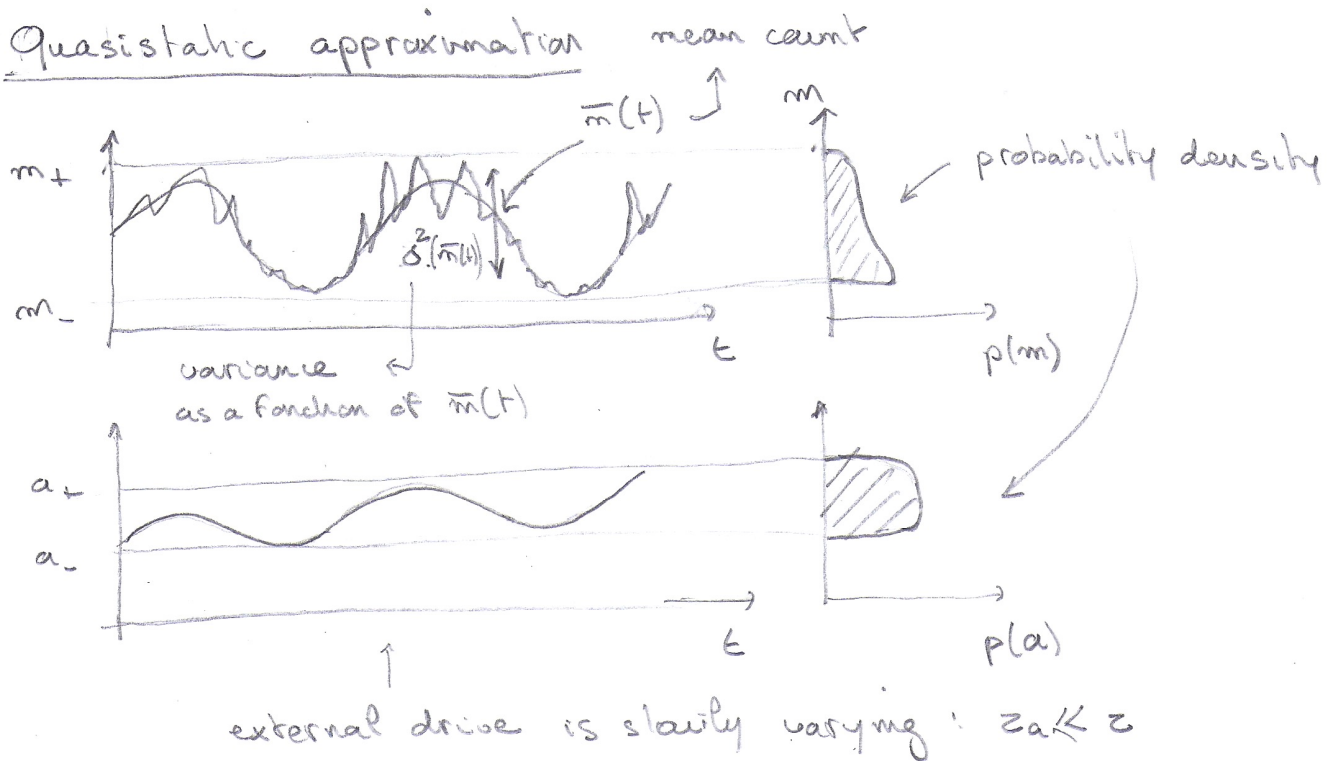 Quasistatic approximation mean count
m̄(t)
m
m+
probability density
σ²(m̄(t))
m-
t
p(m)
variance
as a fonction of m̄(t)
a+
a-
t
p(a)
external drive is slowly varying : τa ≪ τ